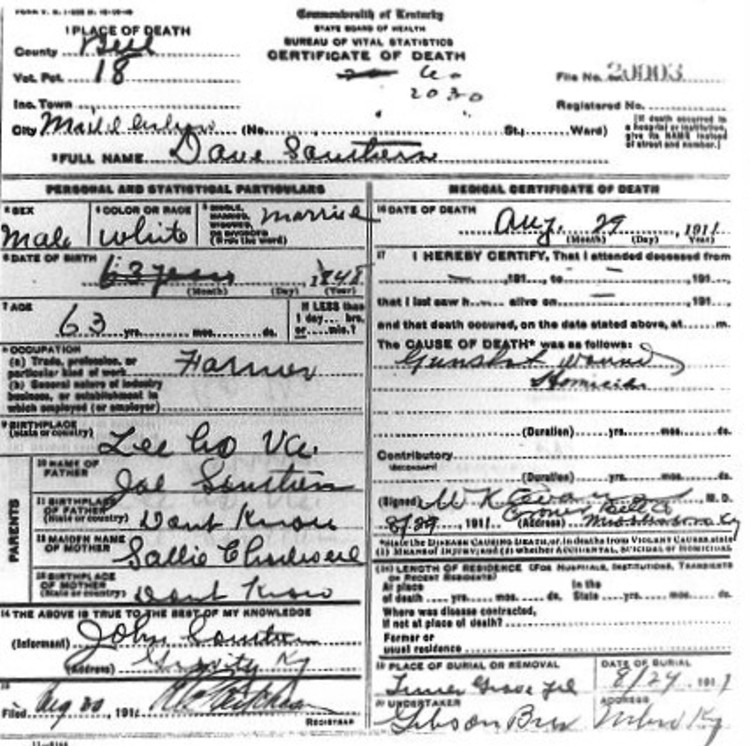 Commonwealth of Kentucky
STATE BOARD OF HEALTH
BUREAU OF VITAL STATISTICS
CERTIFICATE OF DEATH
1 PLACE OF DEATH
County Bell
Vot. Pct. 18
Inc. Town
City
(No. St.; Ward)
2030
File No. 20003
Registered No.
[If death occurred in a hospital or institution, give its NAME instead of street and number.]
2 FULL NAME Dave Southern
PERSONAL AND STATISTICAL PARTICULARS
3 SEX Male
4 COLOR OR RACE White
5 SINGLE, MARRIED, WIDOWED, OR DIVORCED (Write the word) Married
6 DATE OF BIRTH 63 years, 1848
(Month) (Day) (Year)
7 AGE 63 yrs. mos. ds.
If LESS than 1 day hrs. or min.?
8 OCCUPATION
(a) Trade, profession, or particular kind of work Farmer
(b) General nature of industry business, or establishment in which employed (or employer)
9 BIRTHPLACE (State or country) Lee Co Va.
PARENTS
10 NAME OF FATHER Joe Southern
11 BIRTHPLACE OF FATHER (State or country) Dont Know
12 MAIDEN NAME OF MOTHER Sallie
13 BIRTHPLACE OF MOTHER (State or country) Dont Know
14 THE ABOVE IS TRUE TO THE BEST OF MY KNOWLEDGE
(Informant) John Southern
(Address) Ky
15
Filed Aug 30, 191
REGISTRAR
MEDICAL CERTIFICATE OF DEATH
16 DATE OF DEATH Aug. 29, 1911
(Month) (Day) (Year)
17 I HEREBY CERTIFY, That I attended deceased from
, 191 , to , 191 ,
that I last saw h alive on , 191 ,
and that death occured, on the date stated above, at m.
The CAUSE OF DEATH* was as follows:
Gunshot wound
Homicide
(Duration) yrs. mos. ds.
Contributory
(SECONDARY)
(Duration) yrs. mos. ds.
(Signed) W K Evans M. D.
Coroner Bell Co
8/29, 1911 (Address) Middlesboro Ky
*State the DISEASE CAUSING DEATH, or, in deaths from VIOLENT CAUSES, state (1) MEANS OF INJURY; and (2) whether ACCIDENTAL, SUICIDAL or HOMICIDAL
18 LENGTH OF RESIDENCE (FOR HOSPITALS, INSTITUTIONS, TRANSIENTS OR RECENT RESIDENTS)
At place of death yrs. mos. ds. In the State yrs. mos. ds.
Where was disease contracted,
if not at place of death?
Former or
usual residence
19 PLACE OF BURIAL OR REMOVAL
DATE OF BURIAL
8/29 1911
20 UNDERTAKER
Gibson Bros
ADDRESS
Ky